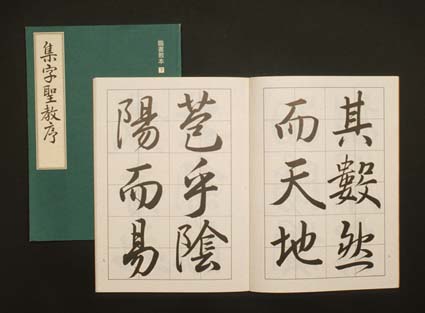 臨書教本
集字聖教序
其數然
而天地
苞乎陰
陽而易